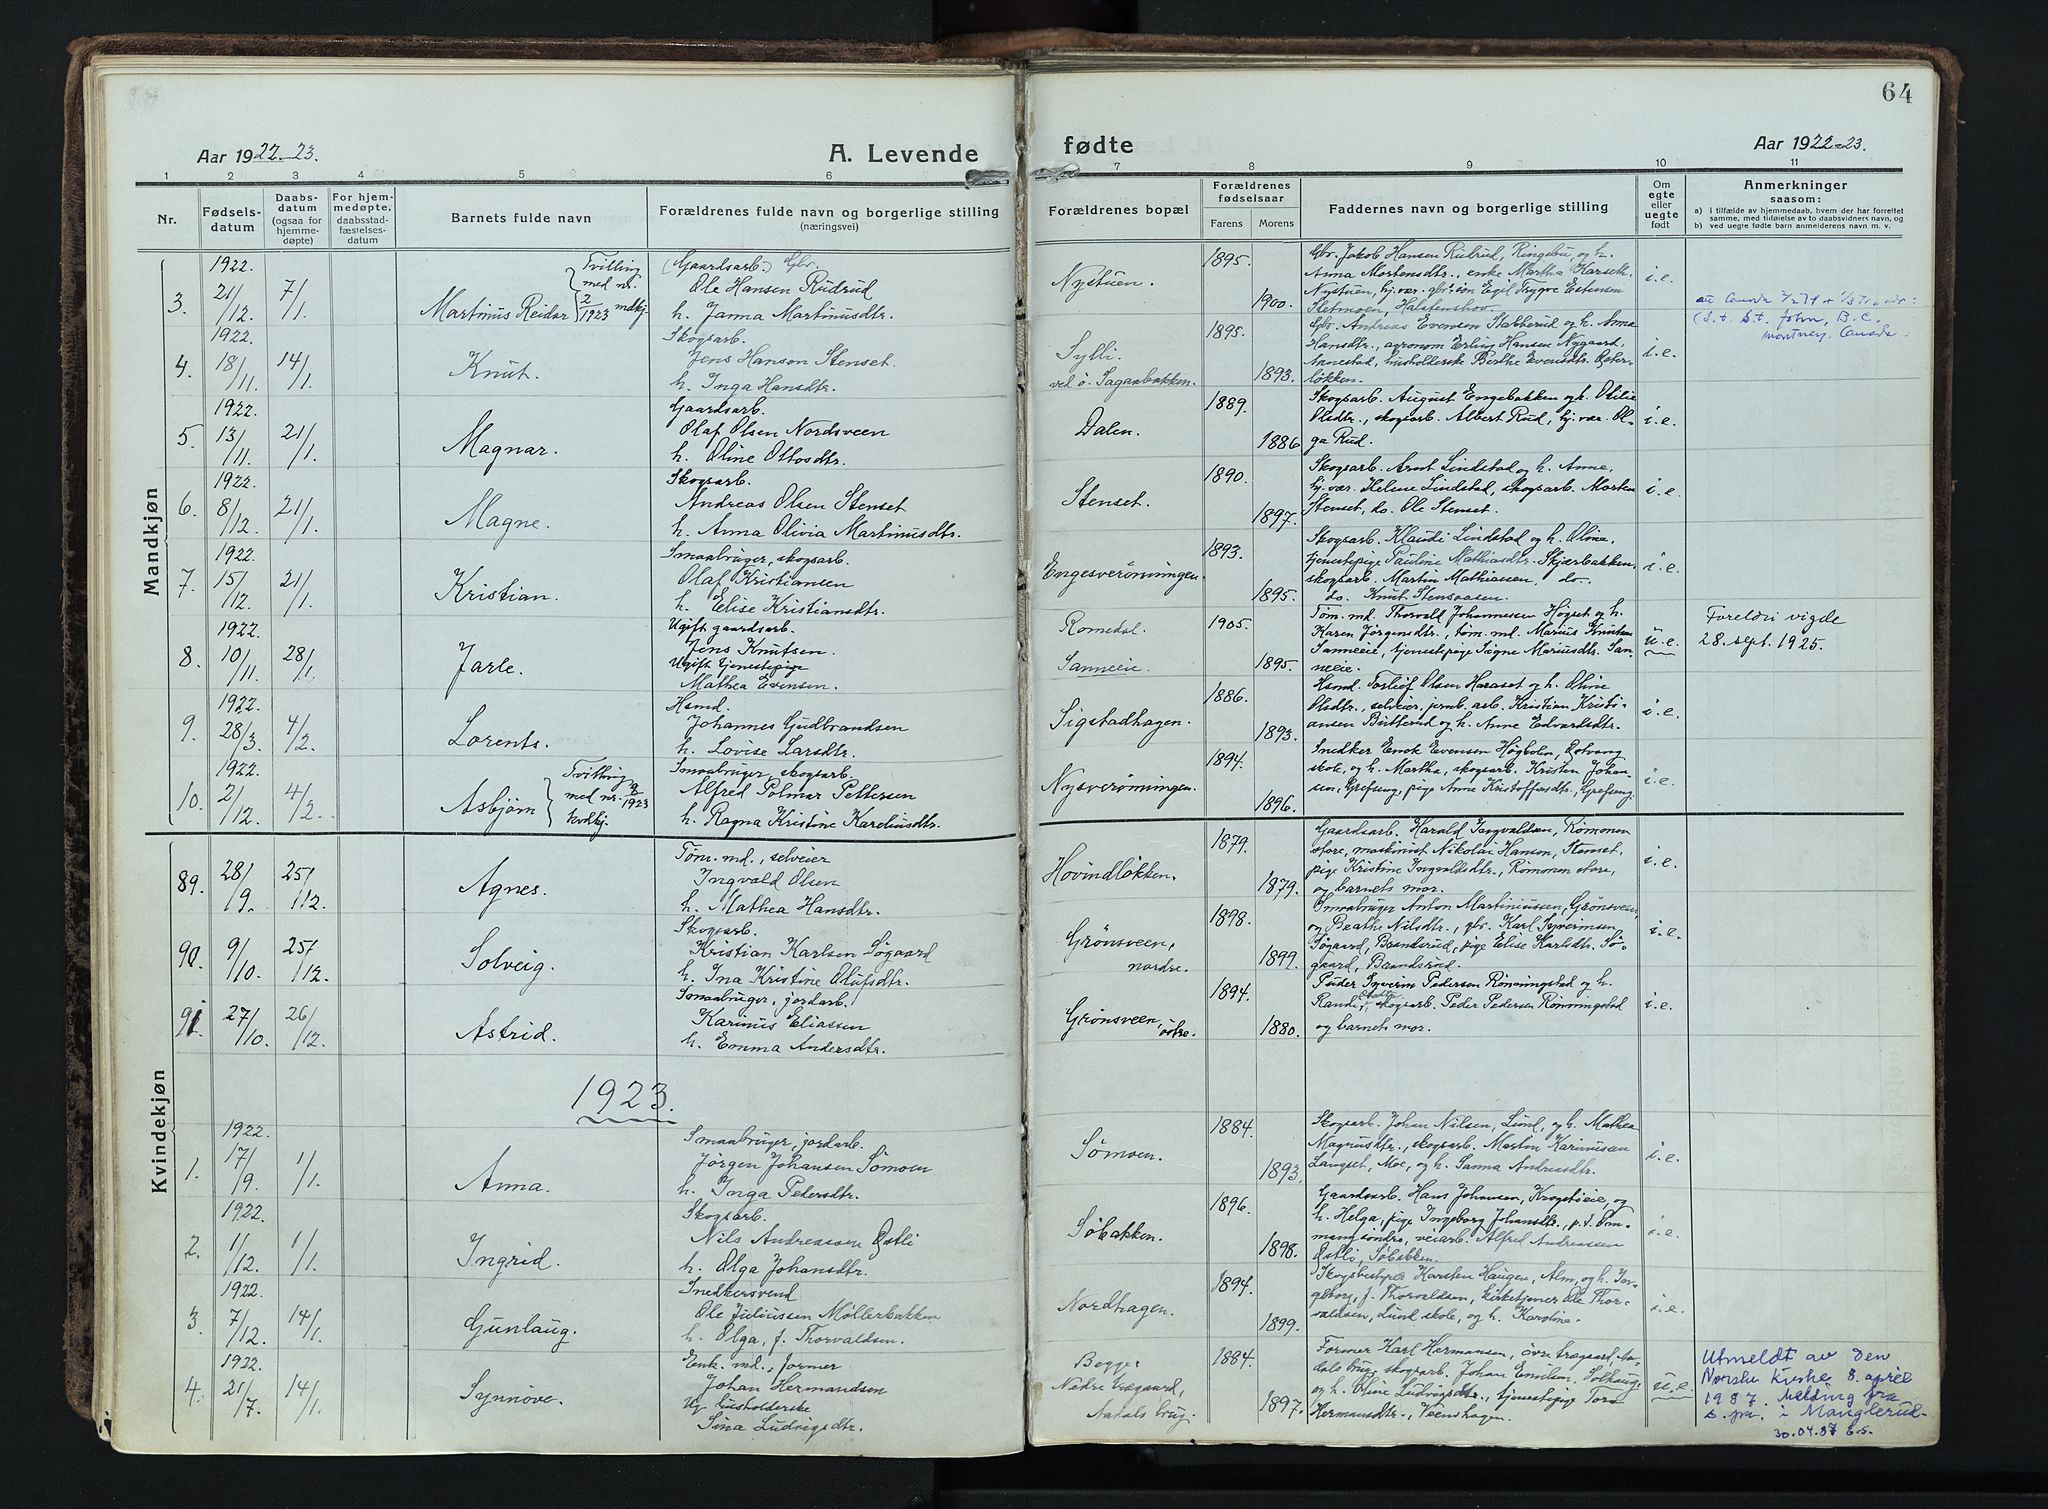 64
Aar 1922-23.
A. Levende
fødte
Aar 1922-23.
1 2 3 4 5 6 7 8 9 10 11
Nr.
Fødsels-
datum
Daabs-
datum
(ogsaa for
hjemme-
døpte)
For hjem-
medøpte,
daabsstad-
fæstelses-
datum
Barnets fulde navn
Forældrenes fulde navn og borgerlige stilling
(næringsvei)
Forældrenes bopæl
Forældrenes
fødselsaar
Farens Morens
Faddernes navn og borgerlige stilling
Om
egte
eller
uegte
født
Anmerkninger
saasom:
a) i tilfælde av hjemmedaab, hvem der har forrettet
samme, med tilføielse av to daabsvidners navn, og
b) ved uegte fødte barn anmelderens navn m. v.
Mandkjøn
3. 1922. 21/12. 7/1.
Martinus Reidar
Tvilling
med nr.
2
1923 mdkj.
(Gaardsarb.) Gbr.
Ole Hansen Rudrud
h. Janna Martinusdtr.
Nystuen.
1895.
1900.
Gbr. Jakob Hansen Rudrud, Ringebu og h.
Anna Mortensdtr., enke Martha Karsek,
Nystuen, hj.vær. gbr.søn Egil Trygve Estensen
Sletmoen, Halstenshov.
i.e.
4. 1922. 18/11. 14/1.
Knut.
Skogsarb.
Jens Hanson Stenset.
h. Inga Hansdtr.
Sylli
ved ö. Sagaabakken.
1895.
1893.
Gbr. Andreas Evensen Stabberud og h. Anna
Hansdtr., agronom Erling Hansen Nygaard,
Annestad, husholderske Berthe Evensdtr. Øster-
løkken.
i.e.
5. 1922. 13/11. 21/1.
Magnar.
Gaardsarb.
Olaf Olsen Nordsveen
h. Oline Ottosdtr.
Dalen.
1889.
1886
Skogsarb. August Engebakken og h. Otilie
Olsdtr., skogsarb. Albert Rud, hj. vær. Ol-
ga Rud.
i.e.
6. 1922. 8/12. 21/1.
Magne.
Skogsarb.
Andreas Olsen Stenset
h. Anna Olivia Martinusdtr.
Stenset.
1890.
1897.
Skogsarb. Arnt Lindstad og h. Anne,
hj. vær. Helene Lindstad, skogsarb. Morten
Stenset, do. Ole Stenset.
i.e.
7. 1922. 15/12. 21/1.
Kristian.
Smaabruger, skogsarb.
Olaf Kristiansen
h. Elise Kristiansdtr.
Engesverønningen.
1893.
1895.
Skogsarb. Klaudi Lindstad og h. Oline,
tjenestepige Pauline Mathiasdtr. Skjærbakken,
skogsarb. Martin Mathiassen, do.
do. Knut Stensaasen.
i.e.
8. 1922. 10/11. 28/1.
Jarle.
Ugift gaardsarb.
Jens Knutsen.
Ugift tjenestepige
Mathea Evensen.
Romedal.
Sanneeie.
1905.
1895.
Tøm. md. Thorvald Johannessen Høgset og h.
Karen Jørgensdtr., tøm. md. Marius Knutsen
Sanneeie, tjenestepige Signe Mariusdtr. San-
neeie.
u.e.
Foreldri vigde
28. sept. 1925.
9. 1922. 28/3. 4/2.
Lorents.
Hsmd.
Johannes Gudbrandsen
h. Lovise Larsdtr.
Sigstadhagen.
1886.
1893.
Hsmd. Torleif Olsen Haraset og h. Oline
Olsdtr., selveier, jernb. arb. Kristian Kristi-
ansen Buttlund og h. Anne Edvardsdtr.
i.e.
10. 1922. 2/12. 4/2.
Asbjørn
Tvilling
med nr. 9
1923
kvdkj.
Smaabruger, skogsarb.
Alfred Polmar Pettersen
h. Ragna Kristine Kareliusdtr.
Nysverønningen.
1894.
1896.
Snedker Enok Evensen Høgbolen, Østvang
skole, og h. Martha, skogsarb. Kristen Johan-
sen, Grefseng, pige Anne Kristoffersdtr., Grefseng.
i.e.
Kvindekjøn
89. 28/9. 25/12.
Agnes.
Tøm. md., selveier
Ingvald Olsen
h. Mathea Hansdtr.
Hovindløkken.
1879.
1879.
Gaardsarb. Harald Ingvaldsen, Kømonen
øvre, maskinist Nikolai Hansen, Stenset,
pige Kristine Ingvaldsdtr., Rømonen øvre,
og barnets mor.
i.e.
90. 9/10. 25/12.
Solveig.
Skogsarb.
Kristian Karlsen Søgaard
h. Ina Kristine Olufsdtr.
Grønsveen,
nordre.
1898.
1899.
Smaabruger Anton Martiniussen, Grønsveen,
og Beathe Nilsdtr., gbr. Karl Syvernsen
Søgaard, Brandsrud, pige Elise Karlsdtr. Sø-
gaard, Brandsrud.
i.e.
91. 27/10. 26/12.
Astrid.
Smaabruger, jordarb.
Karinus Eliassen
h. Emma Andersdtr.
Grønsveen,
østre.
1894.
1880.
Syverin Pedersen Rønningstad og h.
Randi, skogsarb. Peder Pedersen Rønningstad
og barnets mor.
i.e.
1923.
1. 1922. 17/9. 1/1.
Anna.
Smaabruger, jordarb.
Jørgen Johansen Sømoen
h. Inga Pedersdtr.
Sømoen.
1884.
1893.
Skogsarb. Johan Nilsen, Lund, og h. Mathea
Magnusdtr., skogsarb. Martin Karinusen
Langset, Moe, og h. Sanna Andreasdtr.
i.e.
2. 1922. 1/12. 1/1.
Ingrid.
Skogsarb.
Nils Andreassen Østli
h. Olga Johansdtr.
Søbakken.
1896.
1898.
Gaardsarb. Hans Johansen, Krogstøeie, og
h. Helga, pige Ingeborg Johansdtr., p. t. Om-
mang søndre, veiarb. Alfred Andreassen
Østli, Søbakken.
i.e.
3. 1922. 7/12. 14/1.
Gunlaug.
Snedkersvend
Ole Juliussen Møllerbakken
h. Olga, f. Thorvaldsen.
Nordhagen.
1894.
1899.
Skogsbestyrer Karsten Haugen, Alm, og h. In-
geborg, f. Thorvaldsen, kirketjener Ole Thor-
valdsen, Lund skole, og h. Karoline.
i.e.
4. 1922. 21/7. 14/1.
Synnøve.
Enk. md., former
Johan Hermandsen
Ug. husholderske
Sina Ludvigsdtr.
Begge
Nedre Vægaard,
Aadals brug.
1884.
1897.
Former Karl Hermansen, øvre Vægaard, Aa-
dals brug, skogsarb. Johan Emilsen Solhaug,
og h. Oline Ludvigsdtr., tjenestepige Tora
Hermansdtr., Veenshagen.
u.e.
Utmeldt av den
Norske Kirke 8. april
1987. Melding fra
s.pr. i Manglerud.
30.04.87 E.S.